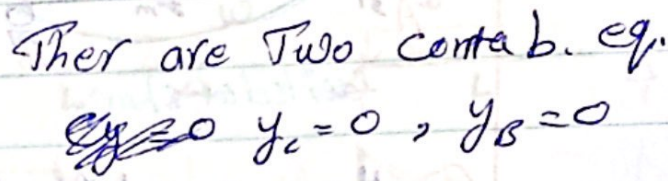 Ther are Two conta b. eq.
y_c = 0 , y_B = 0